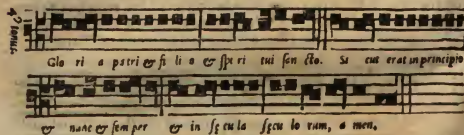 4.ᵘˢ tonus.
Glo ri a patri & fi li o & spi ri tui san cto. Si cut erat in principio
& nunc & sem per & in sęcu la sęcu lo rum, a men,